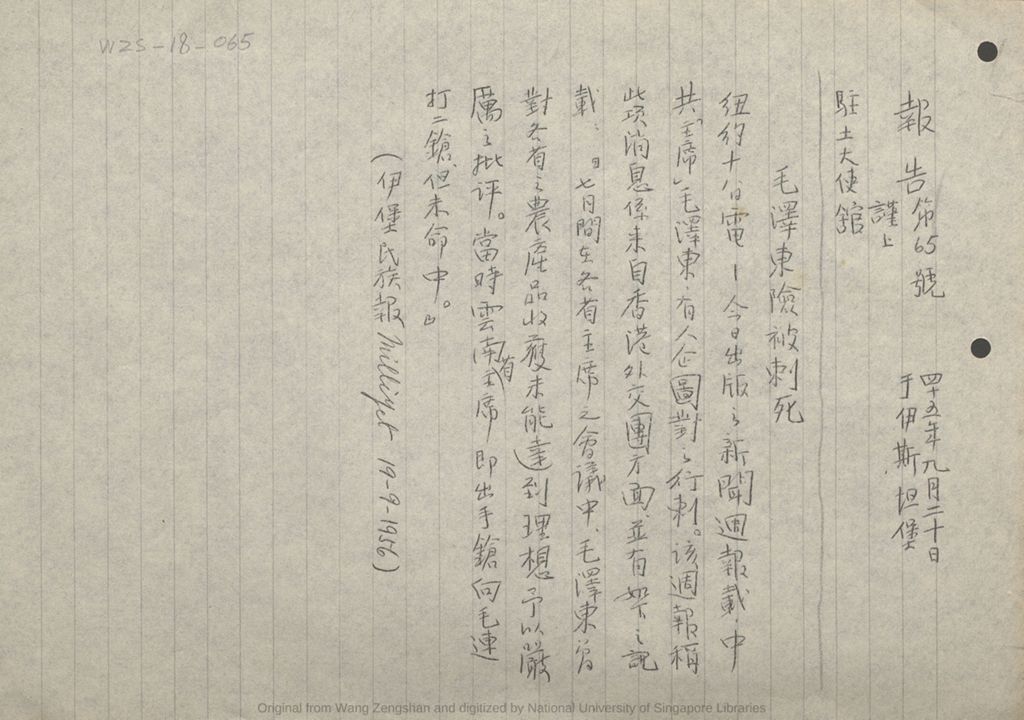 WZS-18-065
報告第65號
四十五年九月二十日
于伊斯坦堡
謹上
駐土大使舘
毛澤東險被刺死
紐約十八日電—今日出版之新聞週報載,中
共「主席」毛澤東,有人企圖對之行刺。該週報稱
此項消息係来自香港外交團方面,並有如下之記
載:『七月間在各省主席之會議中,毛澤東曾
對各省之農産品收獲未能達到理想予以嚴
厲之批评。當時雲南省主席即出手鎗向毛連
打二鎗,但未命中。』
(伊堡民族報 Milliyet 19-9-1956)
Original from Wang Zengshan and digitized by National University of Singapore Libraries